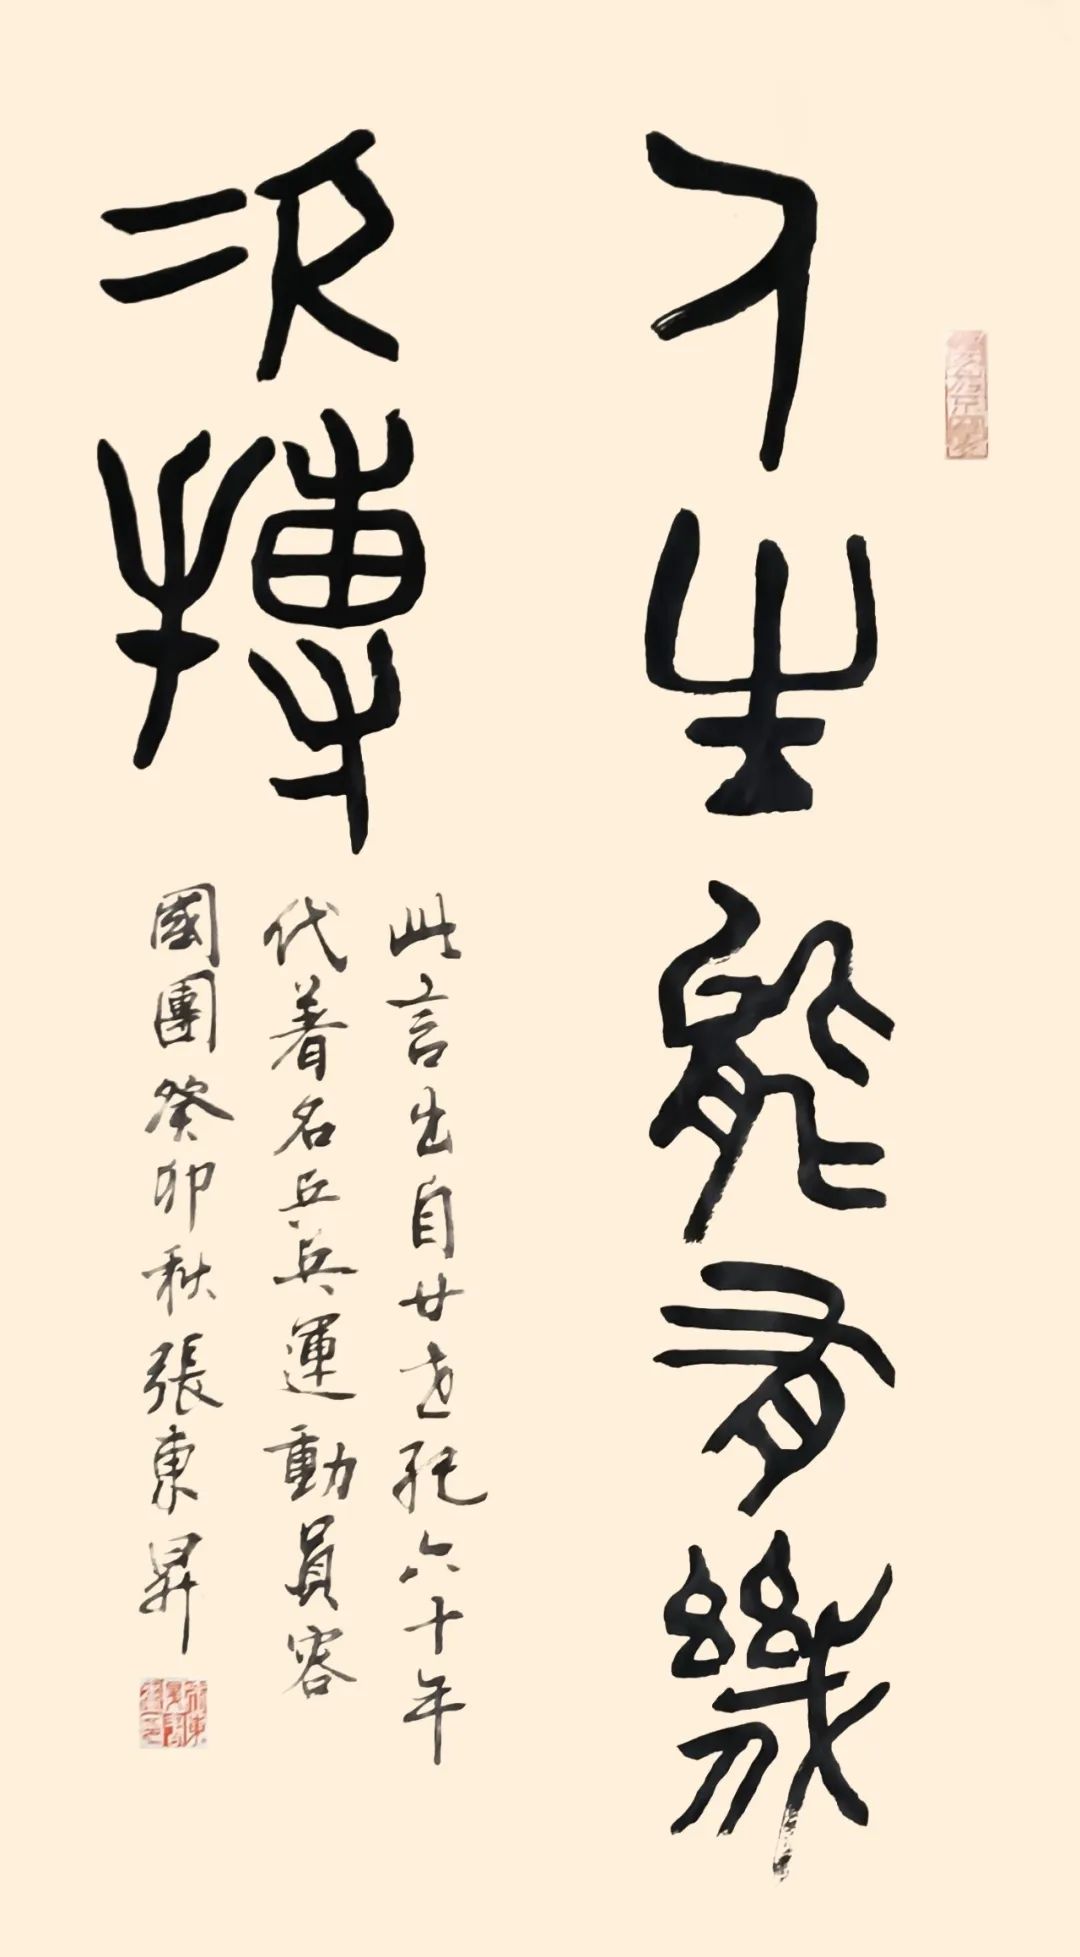 人生能有幾
次搏
此言出自廿世紀六十年
代着名乒乓運動員容
國團癸卯秋張東昇